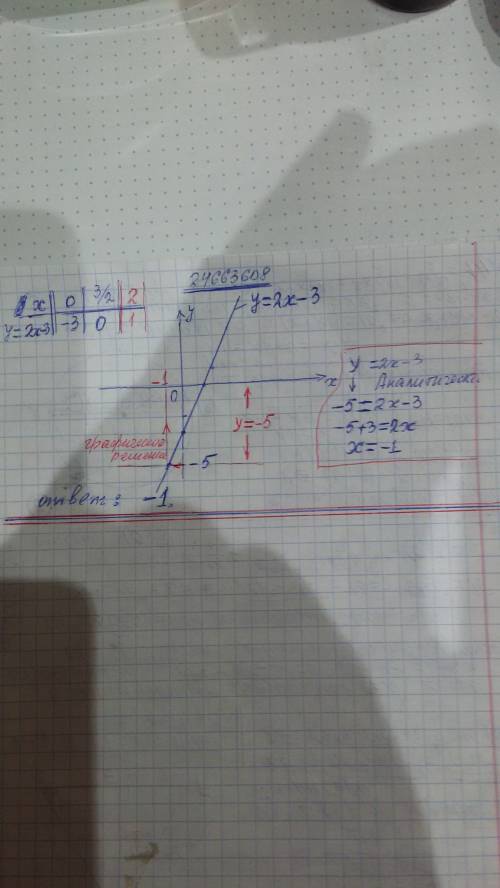 24663608
x 0 3/2 2
y=2x-3 -3 0 1
y
y=2x-3
-1
0
x
y=-5
графическое решение
-5
y=2x-3
↓ Аналитически
-5=2x-3
-5+3=2x
x=-1
ответ: -1.